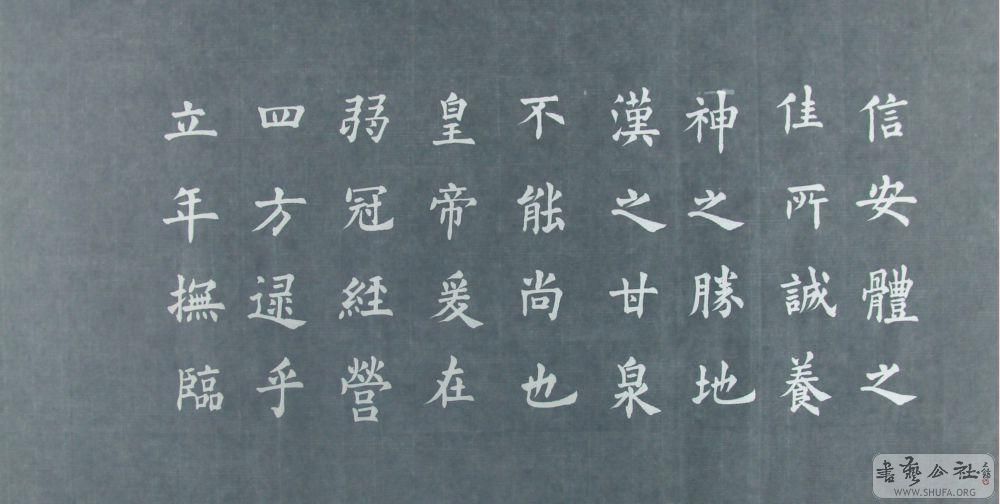 信安體之
佳所誠養
神之勝地
漢之甘泉
不能尚也
皇帝爰在
弱冠經營
四方逯乎
立年撫臨
書藝公社
WWW.SHUFA.ORG